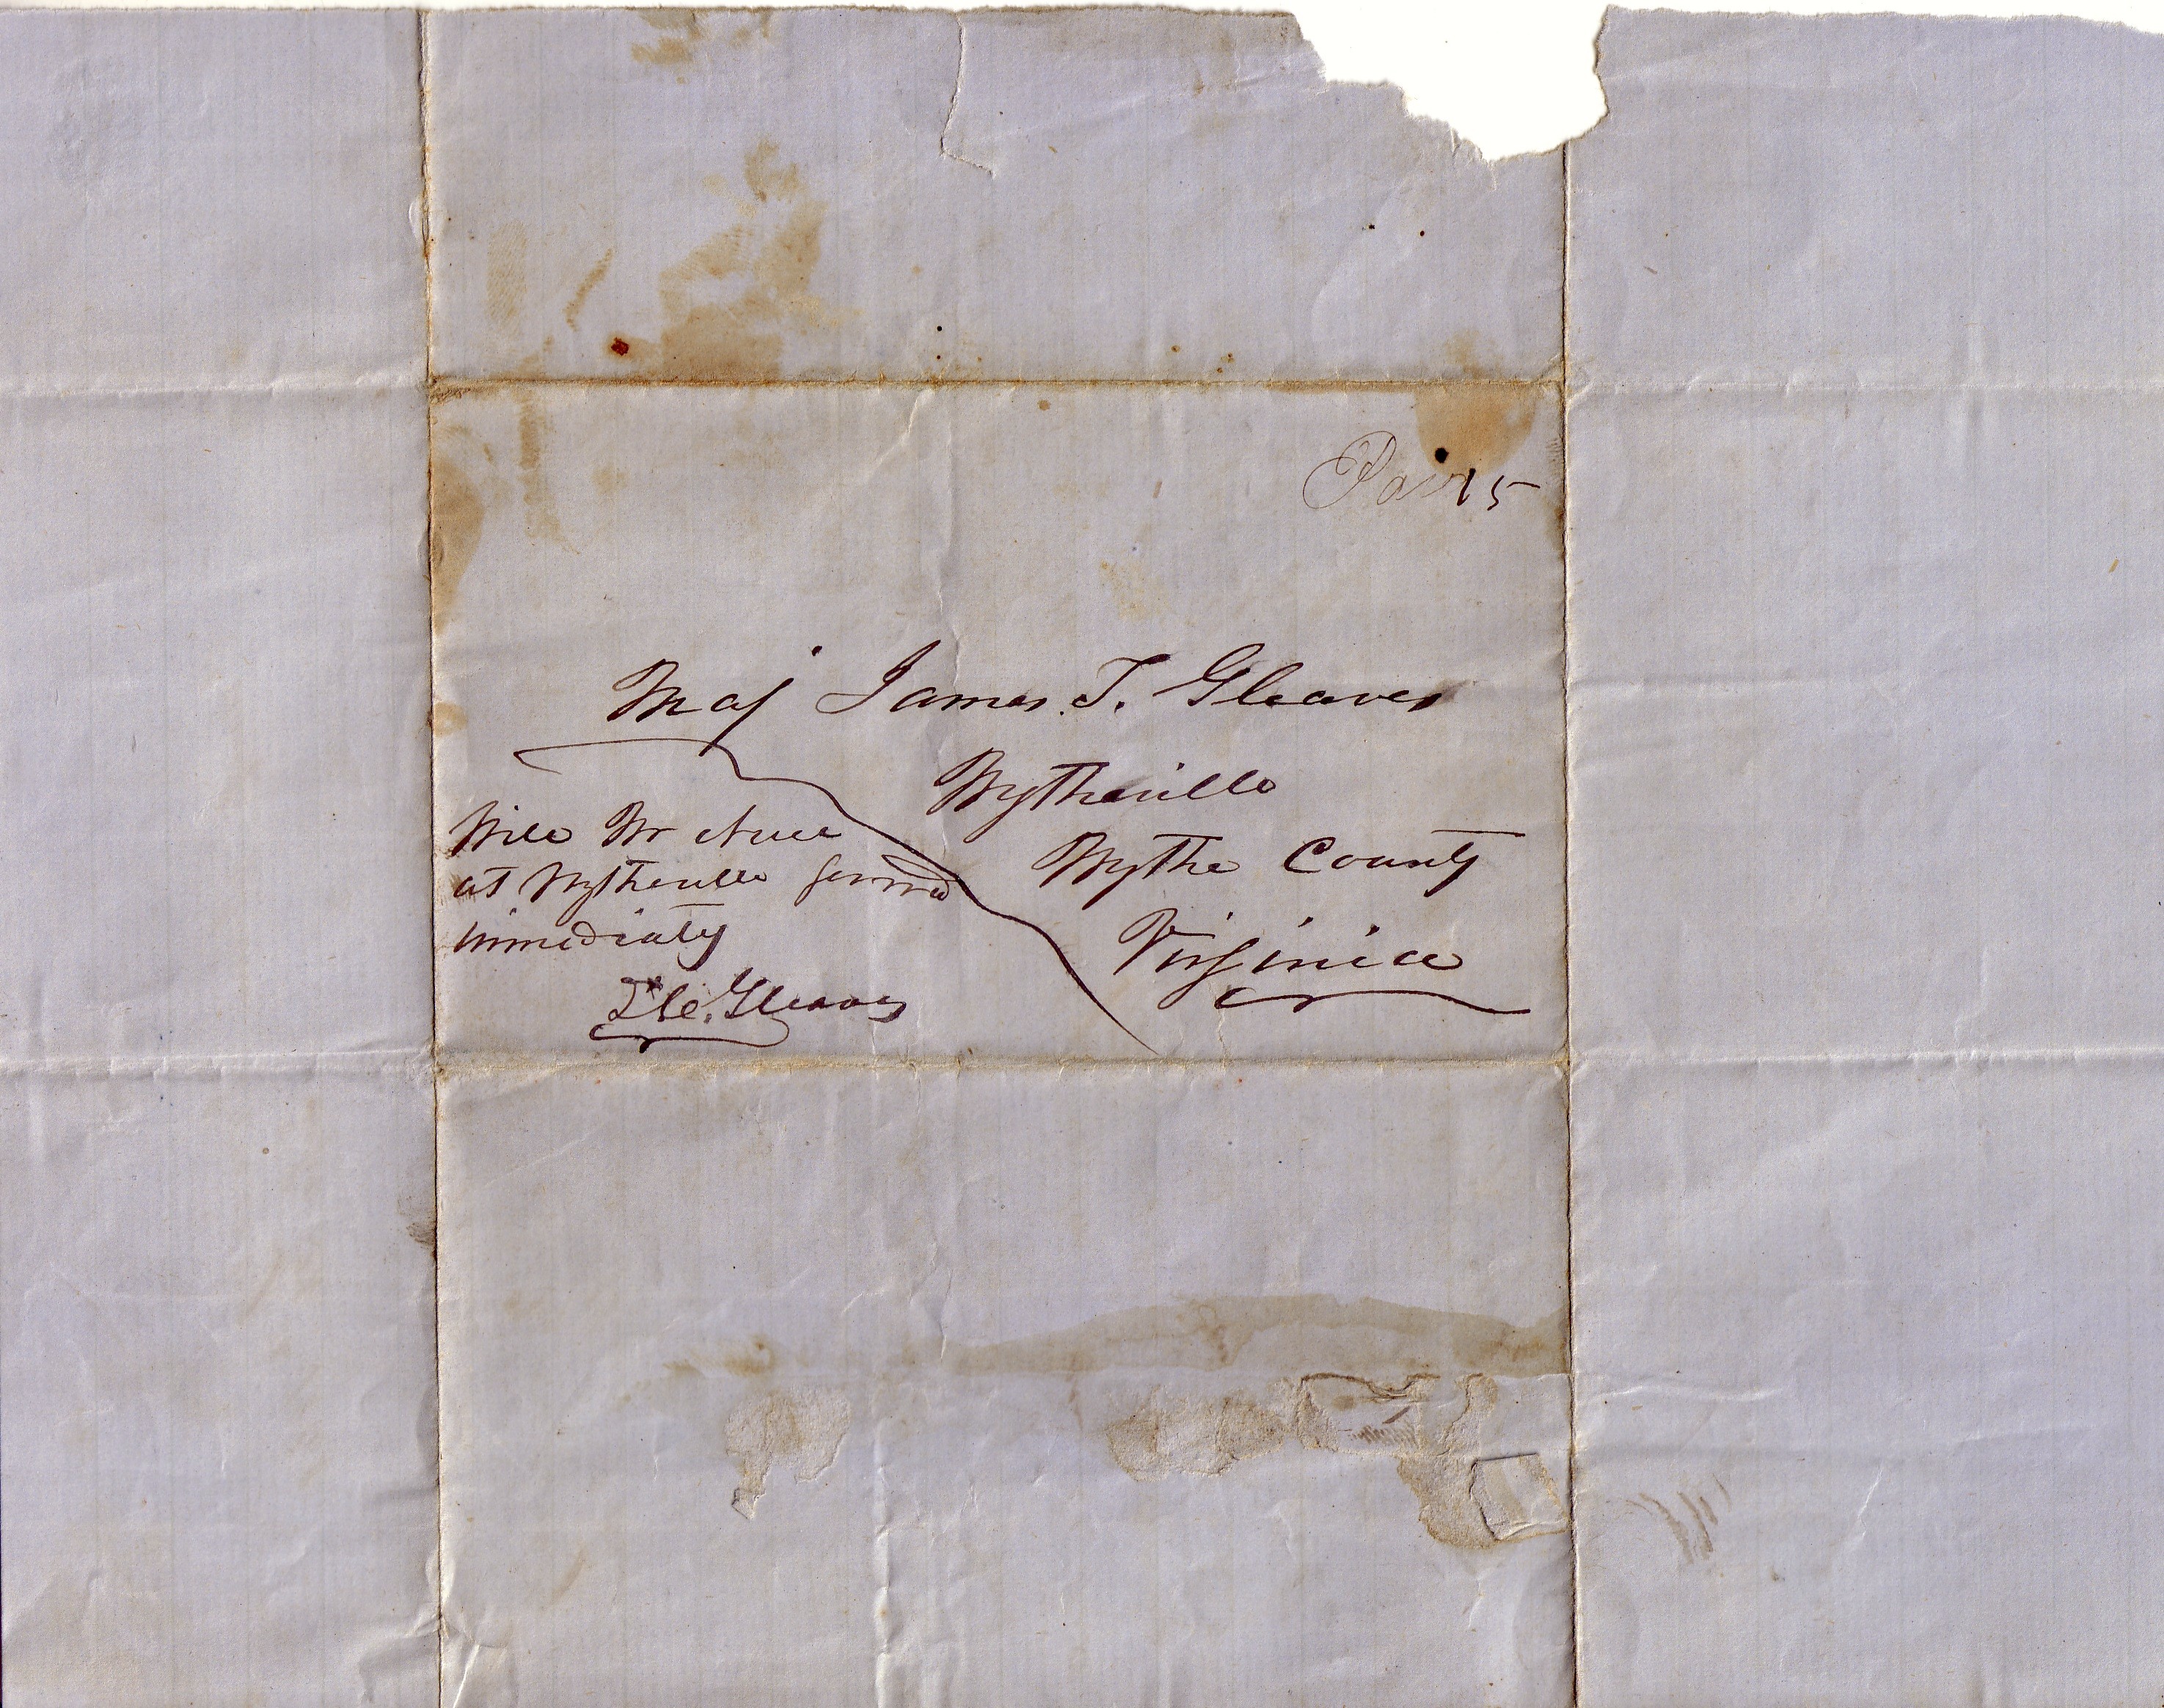 Paid 5
Maj James T. Gleaves
Wytheville
Wythe County
Virginia
Will Mr
at Wytheville forward
immediatly
Gleaves